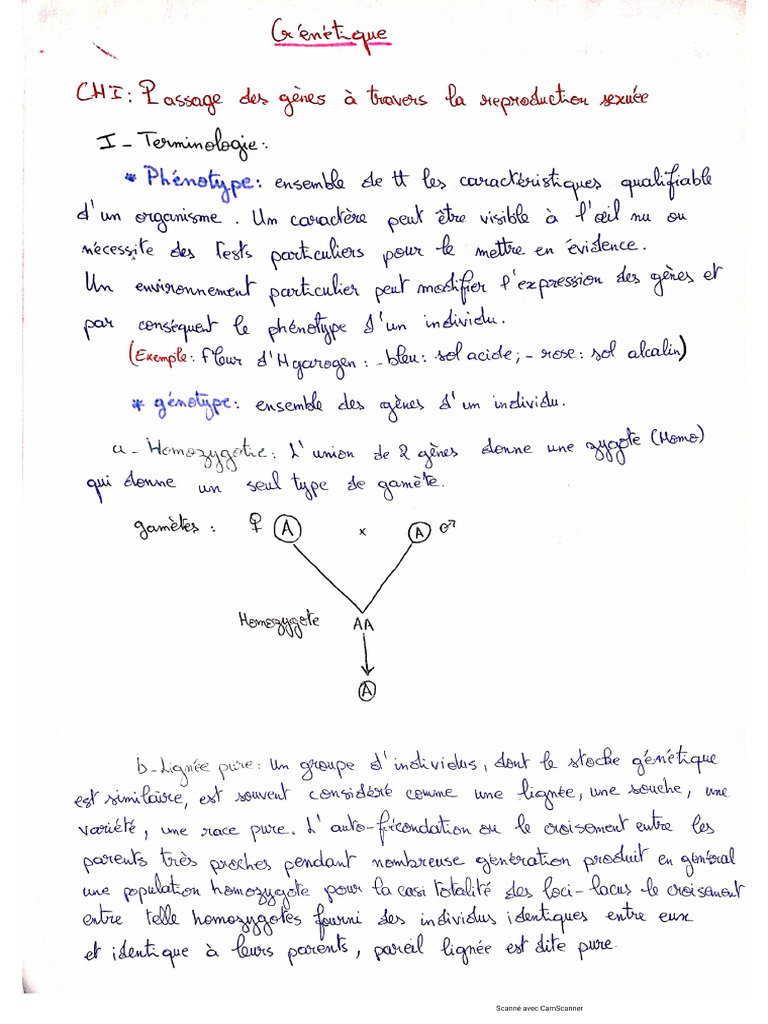 Génétique
CHI: Passage des gènes à travers la reproduction sexuée
I - Terminologie:
* Phénotype: ensemble de tt les caractéristiques qualifiable
d'un organisme. Un caractère peut être visible à l'œil nu ou
nécessite des Tests particuliers pour le mettre en évidence.
Un environnement particulier peut modifier l'expression des gènes et
par conséquent le phénotype d'un individu.
(Exemple: fleur d'Hgarogen: - bleu: sol acide; - rose: sol alcalin)
* génotype: ensemble des gènes d'un individu.
a - Homozygotie: L'union de 2 gènes donne une zygote (Homo)
qui donne un seul type de gamète.
gamètes: ♀ A x A ♂
Homozygote AA
A
b - Lignée pure: Un groupe d'individus, dont le stocke génétique
est similaire, est souvent considéré comme une lignée, une souche, une
variété, une race pure. L'auto-fécondation ou le croisement entre les
parents très proches pendant nombreuse génération produit en général
une population homozygote pour la casi totalité des loci-lacus le croisement
entre telle homozygotes fourni des individus identiques entre eux
et identique à leurs parents, pareil lignée est dite pure.
Scanné avec CamScanner